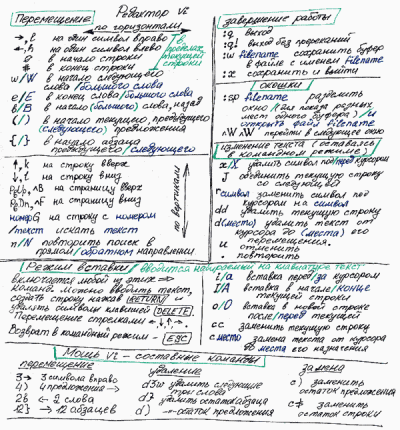 Перемещение
Редактор vi
по горизонтали
→, l на один символ вправо
←, h на один символ влево
в пределах текущей строки
в начало строки
$ в конец строки
w/W в начало следующего слова/большого слова
e/E в конец слова/большого слова
b/B в начало (большого) слова, назад
(/) в начало текущего, предыдущего (следующего) предложения
{/} в начало абзаца предыдущего/следующего
по вертикали
↑, k на строку вверх
↓, j на строку вниз
PgUp, ^B на страницу вверх
PgDn, ^F на страницу вниз
номерG на строку с номером
/текст искать текст
n/N повторить поиск в прямом/обратном направлении
завершение работы
:q выход
:q! выход без пререканий
:w filename сохранить буфер в файле с именем filename
:x сохранить и выйти
окошки
:sp filename разделить окно (для показа разных мест одного буфера) и открыть файл filename
^W^W перейти в следующее окно
изменение текста (оставаясь в командном режиме)
x/X удалить символ под/перед курсором
J объединить текущую строку со следующей
rсимвол заменить символ под курсором на символ
dd удалить текущую строку
d(место) удалить текст от курсора до (места) его перемещения.
u отменить
. повторить
Режим вставки
вводится набираемый на клавиатуре текст
включается любой из этих команд. Можно вводить текст,
создать строку нажав RETURN и
удалить символы клавишей DELETE.
Перемещение стрелками ←↓↑→
Возврат в командный режим – ESC
i/a вставка перед/за курсором
I/A вставка в начале/конце текущей строки
o/O вставка в новой строке после/перед текущей
cc заменить текущую строку
cместо замена текста от курсора до места его назначения
Мощь vi – составные команды
перемещение
3→ 3 символа вправо
4) 4 предложения →
2b ← 2 слова
12} → 12 абзацев
удаление
d3w удалить следующие три слова
d} удалить остаток абзаца
d) –"– остаток предложения
замена
c) заменить остаток предложения
c$ заменить остаток строки